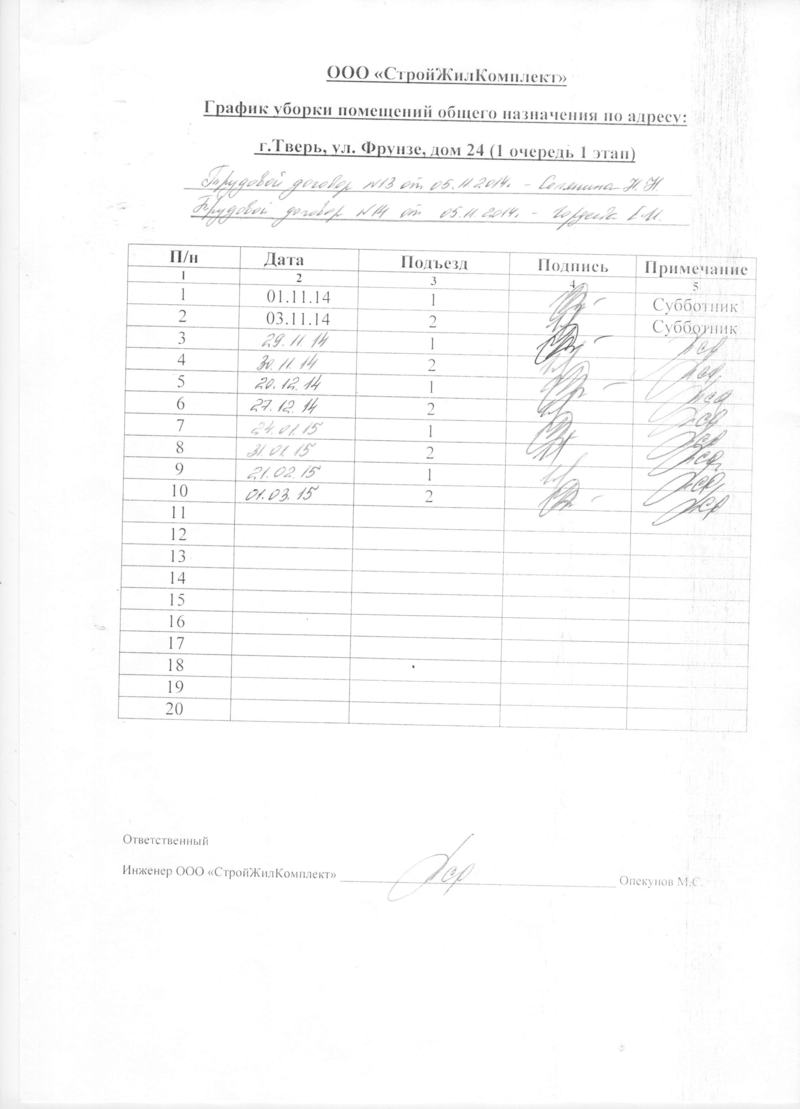 ООО «СтройЖилКомплект»
График уборки помещений общего назначения по адресу:
г.Тверь, ул. Фрунзе, дом 24 (1 очередь 1 этап)
Трудовой договор №13 от 05.11.2014г. - Н.Н
Трудовой договор №14 от 05.11.2014г. -
П/н Дата Подъезд Подпись Примечание
1 2 3 4 5
1 01.11.14 1 Субботник
2 03.11.14 2 Субботник
3 29.11.14 1
4 30.11.14 2
5 20.12.14 1
6 27.12.14 2
7 24.01.15 1
8 31.01.15 2
9 21.02.15 1
10 01.03.15 2
11
12
13
14
15
16
17
18
19
20
Ответственный
Инженер ООО «СтройЖилКомплект» Опекунов М.С.